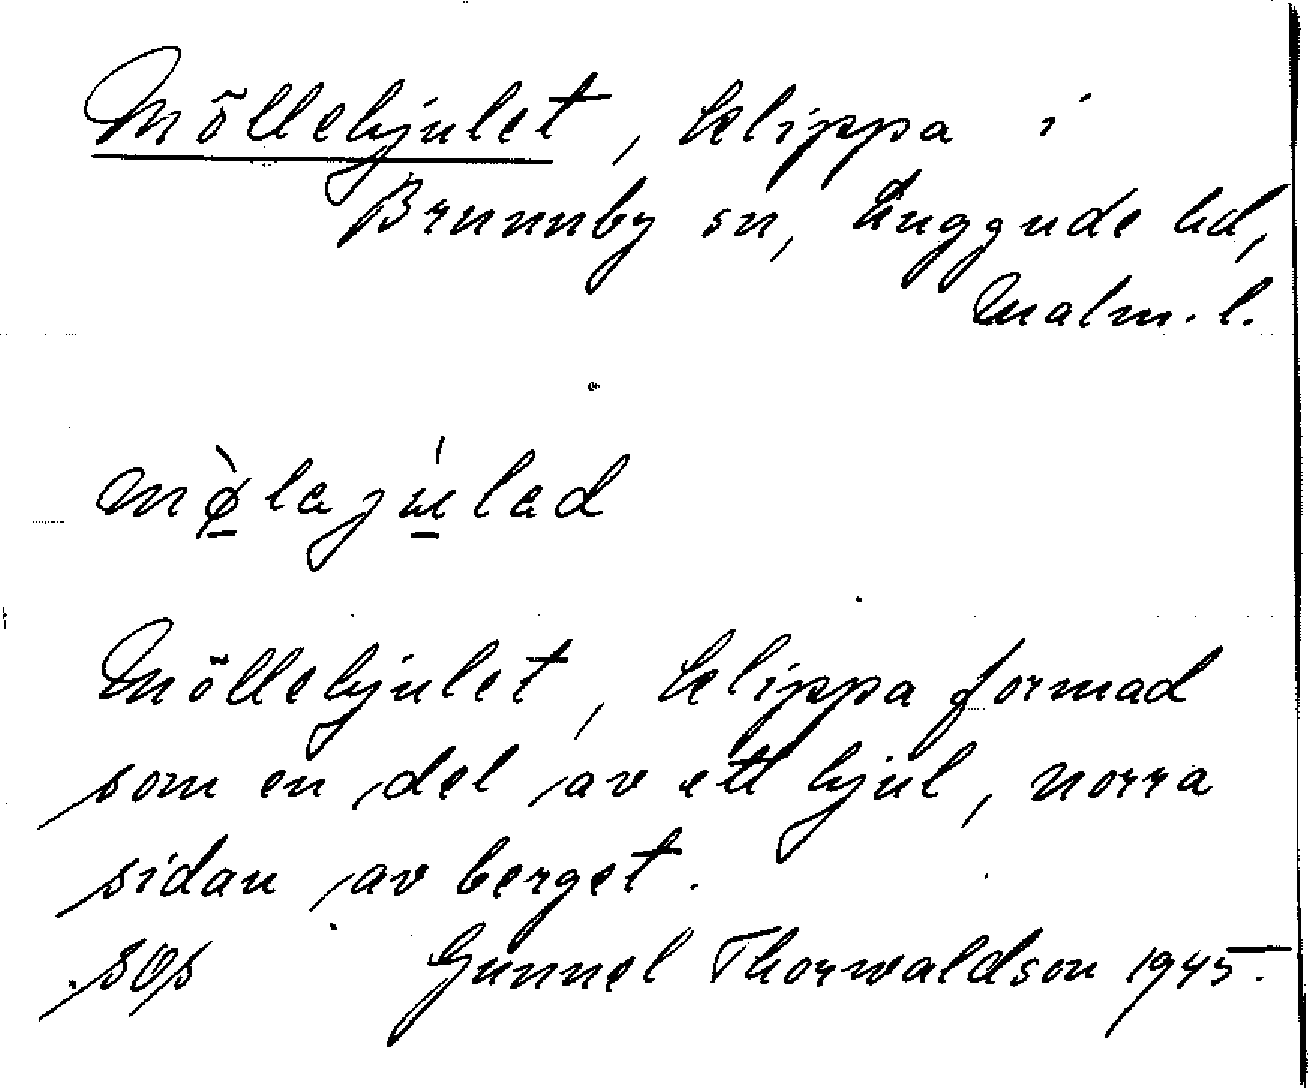 Möllehjulet, klippa i
Brunnby sn, Luggude hd,
Malm. l.
mø̀lajúlad
Möllehjulet, klippa formad
som en del av ett hjul, norra
sidan av berget.
Gunnel Thorwaldson 1945.